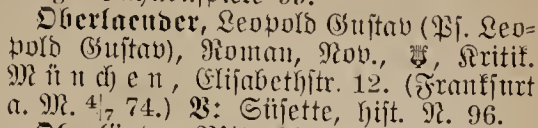 Oberlaender, Leopold Gustav (Ps. Leo=
pold Gustav), Roman, Nov., Kritik.
München, Elisabethstr. 12. (Frankfurt
a. M. 4|7 74.) V: Süsette, hist. R. 96.